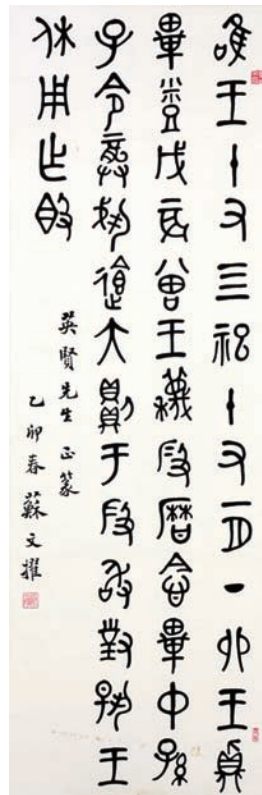 唯王十又四祀十又一月丁卯王鼎
畢登戊辰曾王蔑段曆念畢中孫
子令龏遺大則于段敢對揚王
休用乍𣪘
英賢先生 正篆
乙卯春 蘇文擢